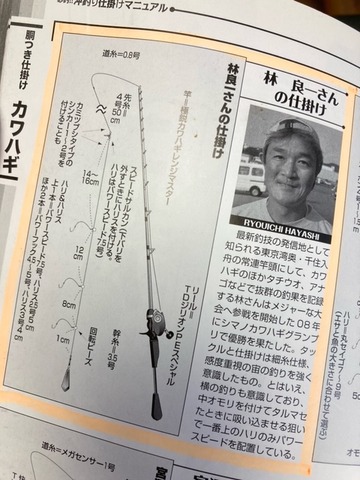 沖釣り仕掛けマニュアル
胴つき仕掛け
カワハギ
林良一さんの仕掛け
道糸=0.8号
竿=極鋭カワハギレンジマスター
先糸=4号50cm
カミツブシタイプのシンカー1〜2号を付けることも
スピードサルカン(エダバリを外すときにハリスを付ける。ハリはパワースピード7.5号)
14〜16cm
12cm
8cm
1cm
リール=TDジリオンPEスペシャル
幹糸=3.5号
回転ビーズ
ハリ&ハリス
上1本=パワースピード7.5号、ハリス2.5号5cm
ほか2本=パワーフック4.5〜5号、ハリス3号4cm
林 良一さん
の仕掛け
RYOUICHI HAYASHI
最新釣技の発信地として
知られる東京湾奥・千住入
舟の常連竿頭にして、カワ
ハギのほかタチウオ、アナ
ゴなどで抜群の釣果を記録
する林さんはメジャーな大
会へ参戦を開始した08年
にシマノカワハギグランプ
リで優勝を果たした。タッ
クルと仕掛けは細糸仕様、
感度重視の宙の釣りを強く
意識したもの。とはいえ、
横の釣りも意識しており、
中オモリを付けてタルマセ
たときに吸い込ませる狙い
で一番上のハリのみパワー
スピードを配置している。
ハリ=丸セイゴ7〜9号
(エサと魚の大きさに合わせて選ぶ)
道糸=メガセンサー1号